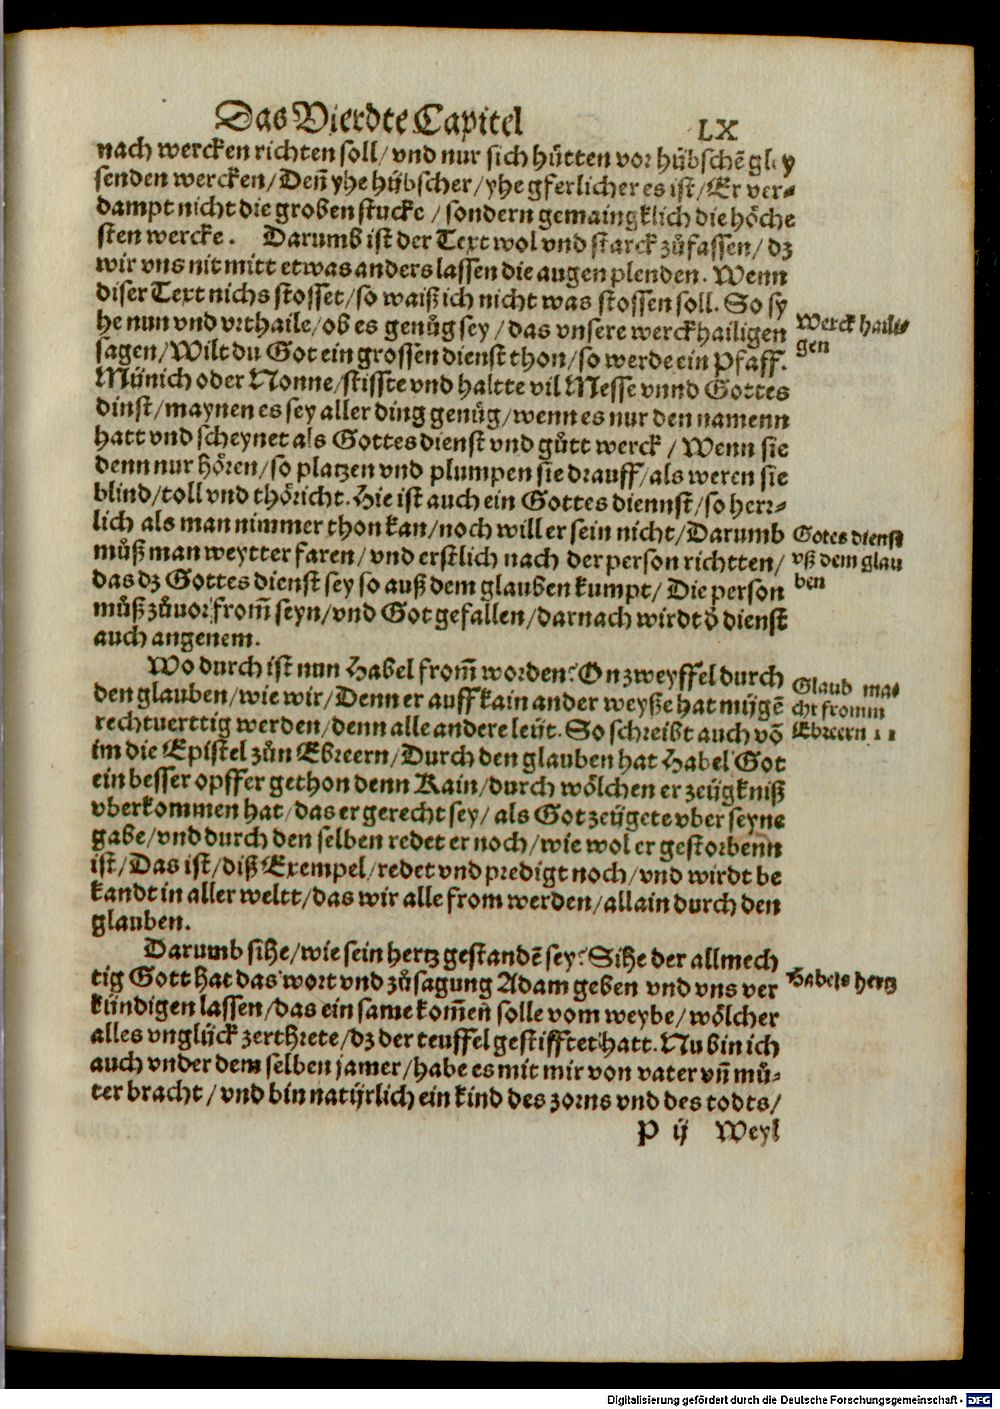 Das Vierdte Capitel LX
nach wercken richten soll/ vnd nur sich hůtten vor hübschē gley
senden wercken/ Deñ yhe hübscher/ yhe gferlicher es ist/ Er ver⸗
dampt nicht die groben stucke / sondern gemaingklich die höche
sten wercke. Darumb ist der Text wol vnd starck zůfassen/ dz
wir vns nit mitt etwas anders lassen die augen plenden. Wenn
diser Text nichs stosset/ so waiß ich nicht was stossen soll. So sy
he nun vnd vrthaile/ ob es genůg sey / das vnsere werckhailigen
sagen/ Wilt du Got ein grossen dienst thon/ so werde ein Pfaff.
Münich oder Nonne/ stiffte vnd haltte vil Messe vnnd Gottes
dinst/ maynen es sey aller ding genůg/ wenn es nur den namenn
hatt vnd scheynet als Gottes dienst vnd gůtt werck / Wenn sie
denn nur hören/ so platzen vnd plumpen sie drauff/ als weren sie
blind/ toll vnd thöricht. Hie ist auch ein Gottes diennst/ so herr⸗
lich als man nimmer thon kan/ noch will er sein nicht/ Darumb
můß man weytter faren/ vnd erstlich nach der person richtten/
das dz Gottes dienst sey so auß dem glauben kumpt/ Die person
můß zůuor from̃ seyn/ vnd Got gefallen/ darnach wirdt d̕ dienst
auch angenem.
Wo durch ist nun Habel from̃ worden? On zweyffel durch
den glauben/ wie wir/ Denn er auff kain ander weyße hat mügē
rechtuerttig werden/ denn alle andere leüt. So schreibt auch võ
im die Epistel zůn Ebreern/ Durch den glauben hat Habel Got
ein besser opffer gethon denn Kain/ durch wölchen er zeügkniß
vberkommen hat/ das er gerecht sey/ als Got zeügete vber seyne
gabe/ vnd durch den selben redet er noch/ wie wol er gestorbenn
ist/ Das ist/ diß Exempel/ redet vnd predigt noch/ vnd wirdt be
kandt in aller weltt/ das wir alle from werden/ allain durch den
glauben.
Darumb sihe/ wie sein hertz gestandē sey? Sihe der allmech
tig Gott hat das wort vnd zůsagung Adam geben vnd vns ver
kündigen lassen/ das ein same kom̃en solle vom weybe/ wölcher
alles vnglück zerthrete/ dz der teuffel gestifftet hatt. Nu bin ich
auch vnder dem selben jamer/ habe es mit mir von vater vñ mů⸗
ter bracht / vnd bin natürlich ein kind des zorns vnd des todts/
P ij Weyl
Werck haili⸗
gen
Gotes dienst
vß dem glau
ben
Glaub ma⸗
cht fromm
Ebreern 11
Habels hertz
Digitalisierung gefördert durch die Deutsche Forschungsgemeinschaft - DFG